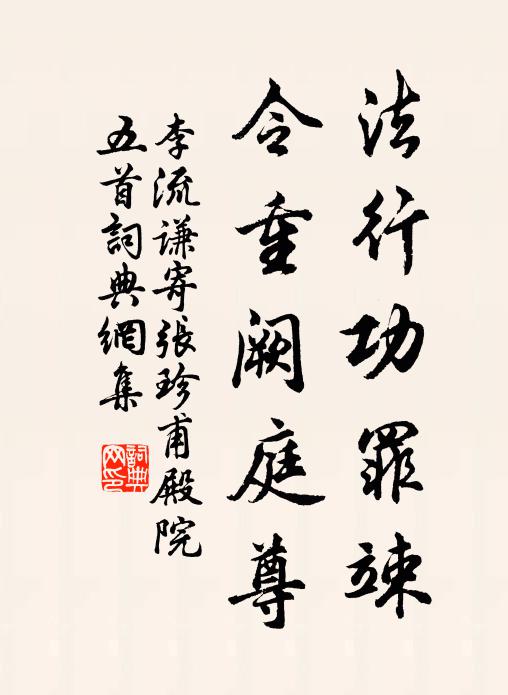 法行功罪竦
令重阙庭尊
李流谦寄张珍甫殿院
五首詞典網集
詞典网印